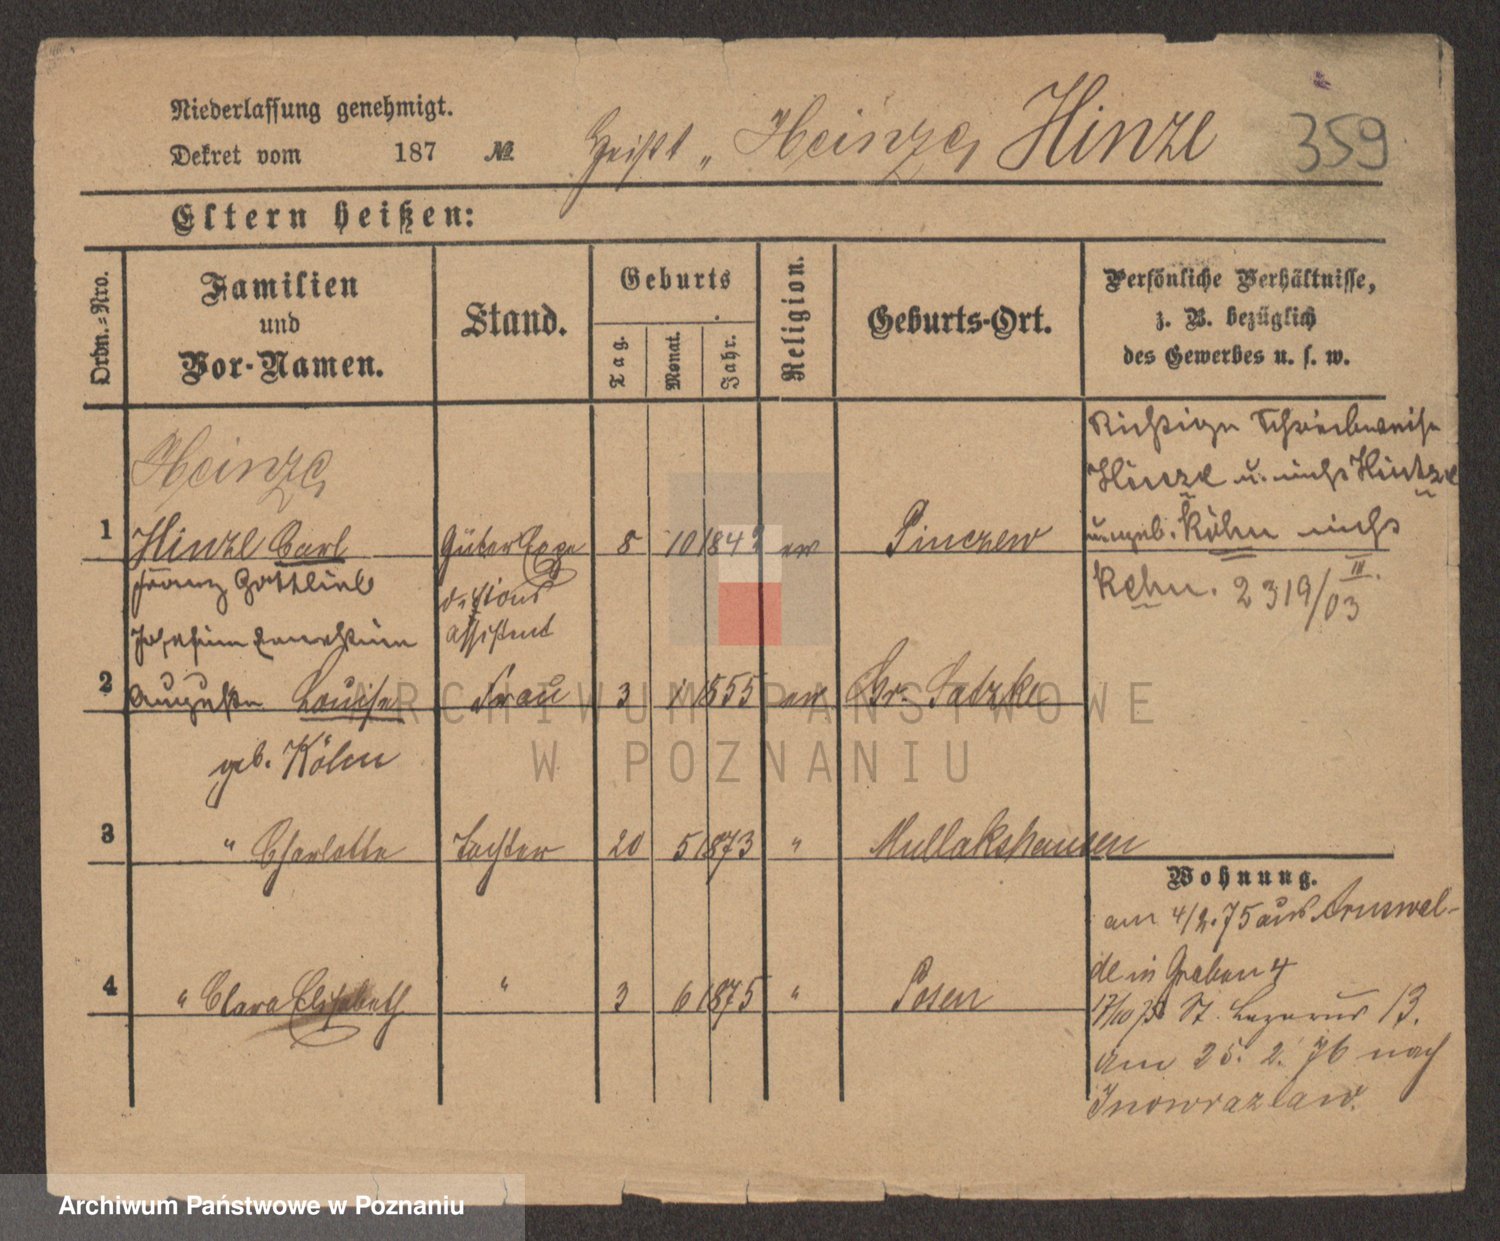 Niederlassung genehmigt.
Dekret vom 187 №
Heißt „ Heinze, Hinze 359
Eltern heißen:
Ordn.-Nro.
Familien und Vor-Namen.
Stand.
Geburts
Tag. Monat. Jahr.
Religion.
Geburts-Ort.
Persönliche Verhältnisse,
z. B. bezüglich
des Gewerbes u. s. w.
Heinze,
1 Hinze Carl Güter Expe 8 10 1842 ev Pinczew
Franz Gottlieb ditions
assistent
Josefine Ernestine
2 Auguste Louise Frau 3 1 1855 ev Gr. Latzke
geb. Köhn
3 " Charlotte Tochter 20 5 1873 " Mullakshausen
4 " Clara Elisabeth " 3 6 1875 " Posen
Richtige Schreibweise
Hinze u. nicht Hintze
u. geb. Köhn nicht
Kehn. 2319/03 III.
Wohnung.
am 4/2.75 aus Arnswal-
de in Graben 4
17/10 75 St. Lazarus 13.
am 25. 2. 76 nach
Inowrazlaw.
ARCHIWUM PAŃSTWOWE
W POZNANIU
Archiwum Państwowe w Poznaniu